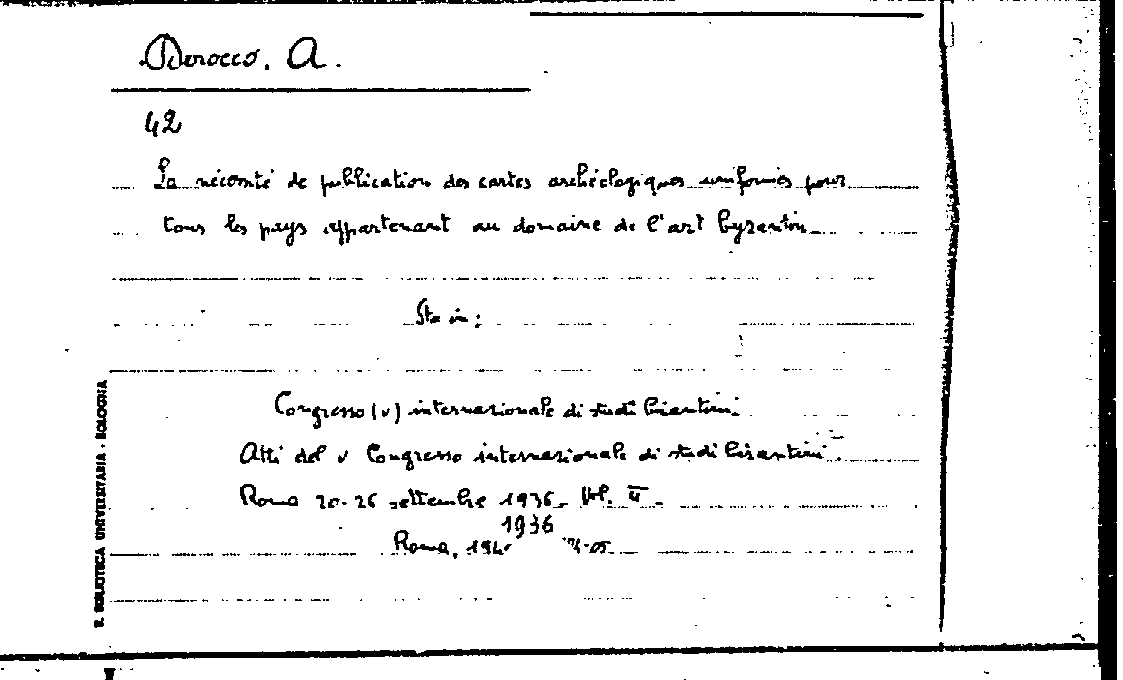 Derocco. A.
42
La nécessité de publication des cartes archéologiques uniformes pour
tous les pays appartenant au domaine de l'art byzantin
Sta in:
Congresso (V) internazionale di studi bizantini.
Atti del V Congresso internazionale di studi bizantini.
Roma 20-26 settembre 1936. Vol. II.
1936
Roma, 194
R. BIBLIOTECA UNIVERSITARIA - BOLOGNA